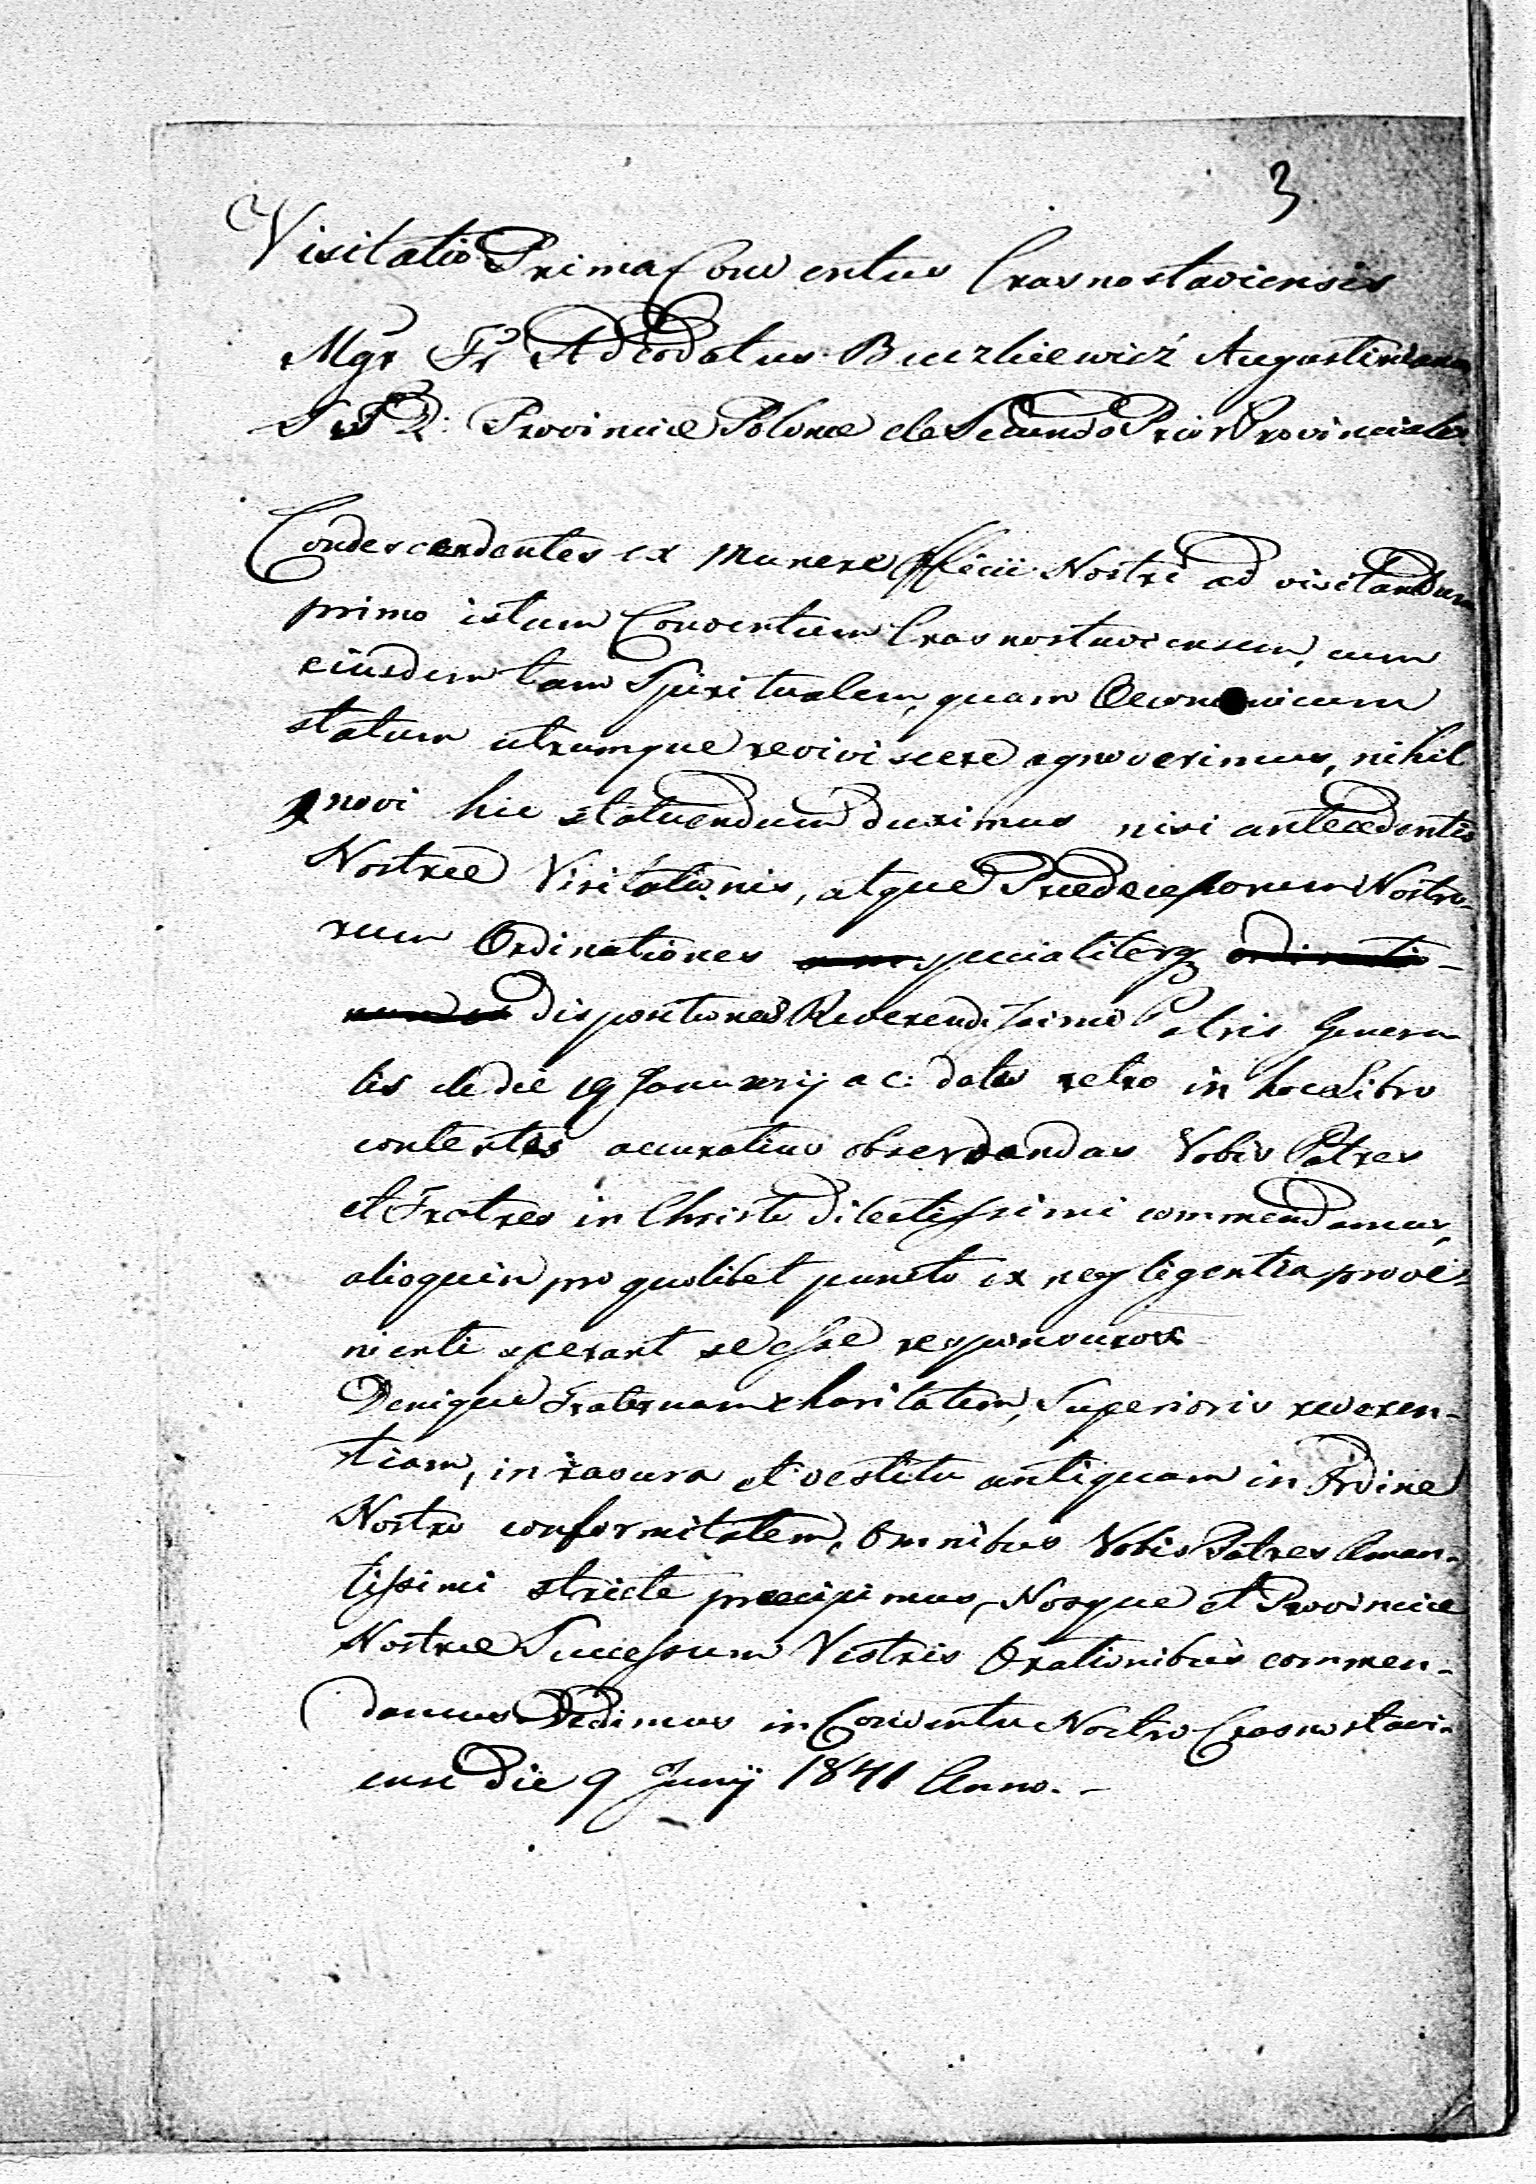 3
Visitatio Prima Conventus Crasnostaviensis
Mgr Fr Adeodatus Buczkiewicz Augustinianae
Provinciae Polonae de Secundo Prior Provincialis
Condescendentes ex Munere Officii Nostri ad visitandum
primo istum Conventum Crasnostaviensem, cum
eiusdem tam Spiritualem, quam Oeconomicum
statum utrumque reviviscere agnoverimus, nihil
novi hic statuendum duximus nisi antecedentis
Nostrae Visitationis, atque Praedecessorum Nostro-
rum Ordinationes specialiterq
Dispositiones Reverendissimi Patris Genera-
lis de die 19 Januarij a c: datas retro in hoc Libro
contentas accuratius observandas Vobis Patres
et Fratres in Christo Dilectissimi commendamus,
alioquin pro quolibet puncto ex negligentia prove-
nienti sperant se esse responsuros
Denique Fraternam charitatem, Superioris reveren-
tiam, in rasura et vestitu antiquam in Ordine
Nostro conformitatem, Omnibus Vobis Patres Aman-
tissimi stricte praecipimus, Nosque et Provinciae
Nostrae Successum Vestris Orationibus commen-
damus. Dedimus in Conventu Nostro Crasnostavi-
ensi Die 9 Junij 1841 Anno. -